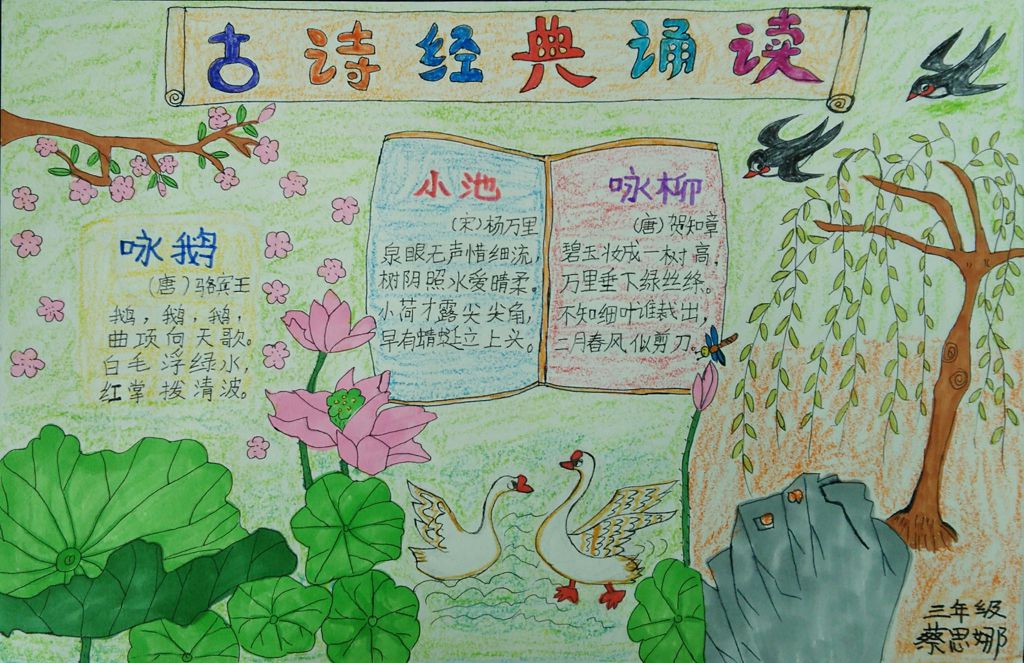 古诗经典诵读
咏鹅
(唐)骆宾王
鹅，鹅，鹅，
曲项向天歌。
白毛浮绿水，
红掌拨清波。
小池
(宋)杨万里
泉眼无声惜细流，
树阴照水爱晴柔。
小荷才露尖尖角，
早有蜻蜓立上头。
咏柳
(唐)贺知章
碧玉妆成一树高，
万里垂下绿丝绦。
不知细叶谁裁出，
二月春风似剪刀。
三年级
蔡思娜